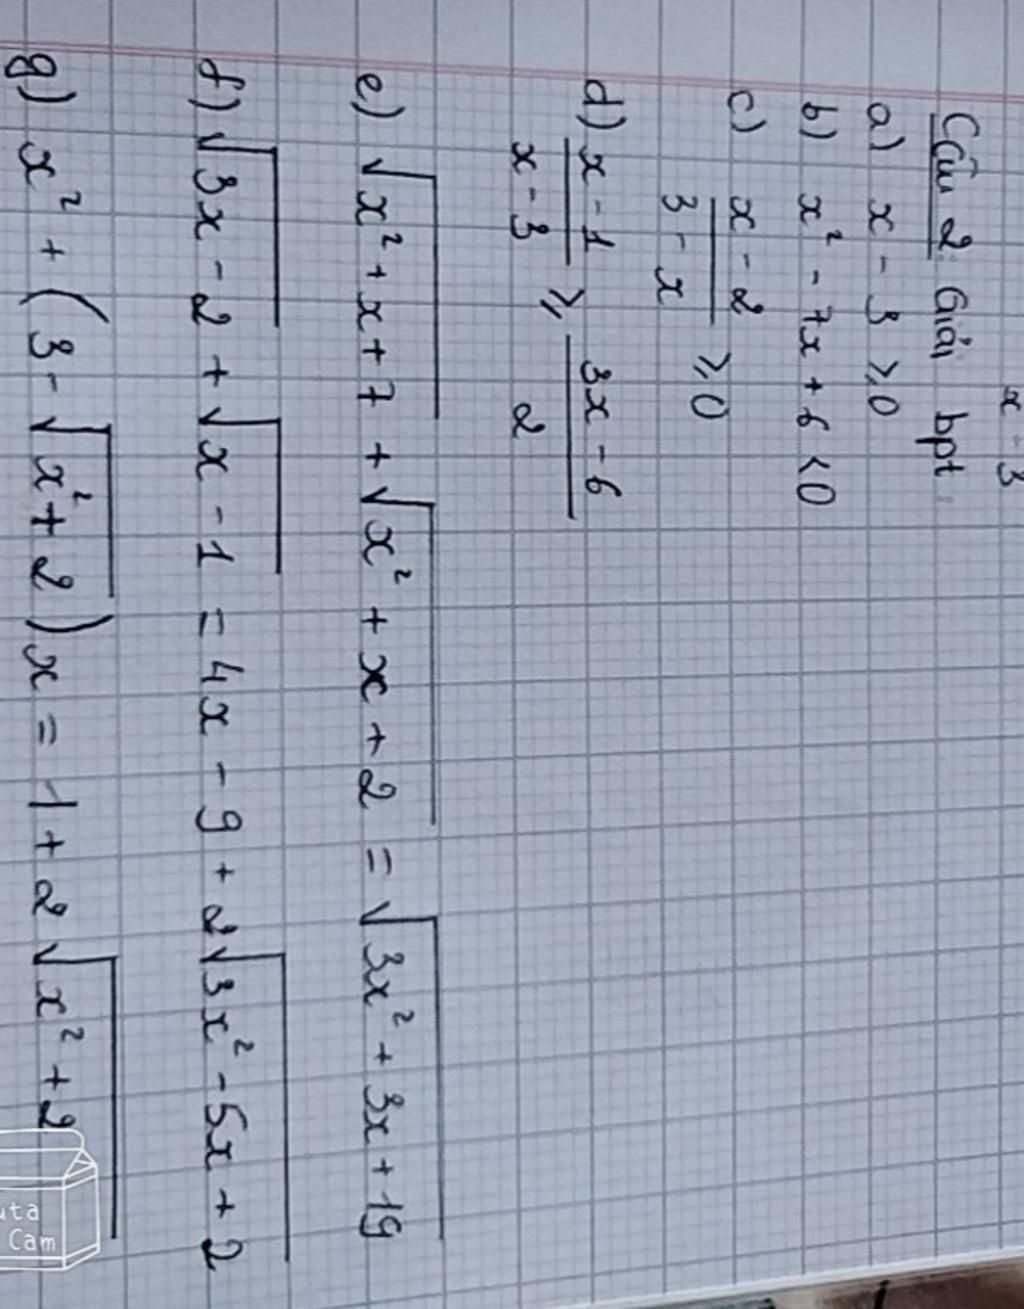 x - 3
Câu 2: Giải bpt
a) x - 3 ≥ 0
b) x² - 7x + 6 < 0
c) (x - 2)/(3 - x) ≥ 0
d) (x - 1)/(x - 3) ≥ (3x - 6)/2
e) √(x² + x + 7) + √(x² + x + 2) = √(3x² + 3x + 19)
f) √(3x - 2) + √(x - 1) = 4x - 9 + 2√(3x² - 5x + 2)
g) x² + (3 - √(x² + 2))x = 1 + 2√(x² + 2)
uta
Cam